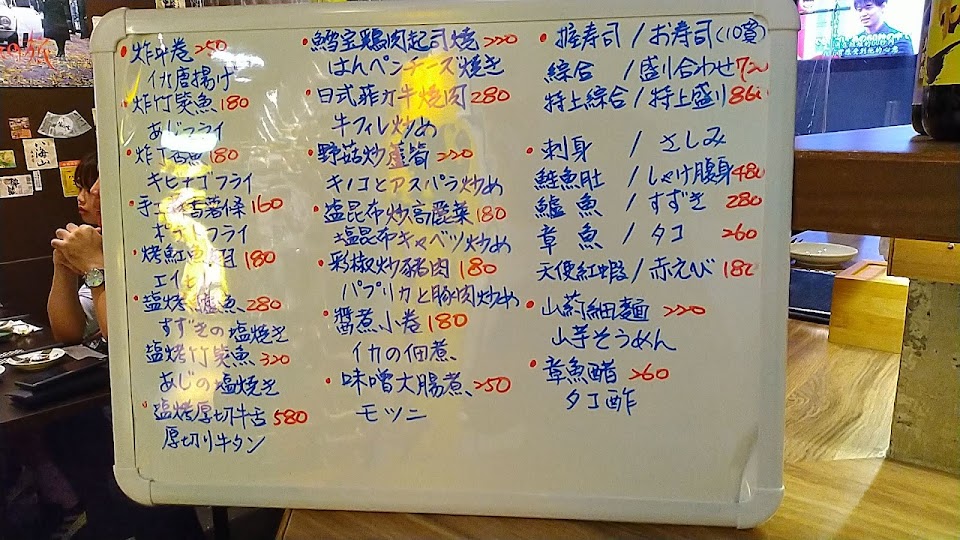 炸中卷 250
イカ唐揚げ
炸竹筴魚 180
あじフライ
炸丁香魚 180
キビナゴフライ
手工薯條 160
ポテトフライ
烤紅魚 180
エイヒ
塩烤鱸魚 280
すずきの塩焼き
塩烤竹筴魚 320
あじの塩焼き
塩烤厚切牛舌 580
厚切り牛タン
鱈宝鶏肉起司燒 220
はんペンチーズ焼き
日式菲力牛燒肉 280
牛フィレ炒め
野菇炒蘆筍 220
キノコとアスパラ炒め
塩昆布炒高麗菜 180
塩昆布キャベツ炒め
彩椒炒豬肉 180
パプリカと豚肉炒め
醬煮小卷 180
イカの佃煮
味噌大腸煮 250
モツニ
握寿司 / お寿司 (10貫)
綜合 / 盛り合わせ 720
特上綜合 / 特上盛り 860
刺身 / さしみ
鮭魚肚 / しゃけ腹身 480
鱸魚 / すずき 280
章魚 / タコ 260
天使紅蝦 / 赤えび 180
山药細麵 220
山芋そうめん
章魚醋 260
タコ酢